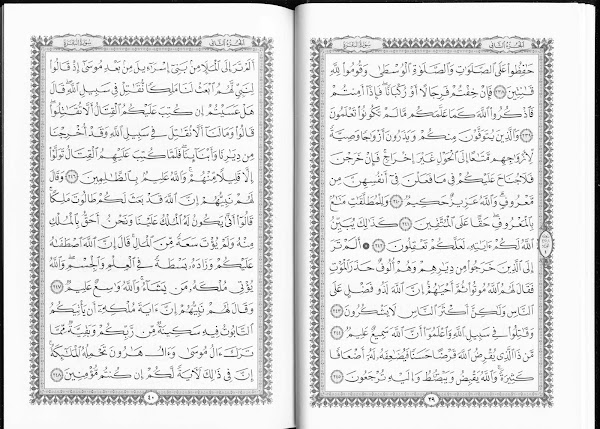 الجزء الثاني
سورة البقرة
حَٰفِظُوا۟ عَلَى ٱلصَّلَوَٰتِ وَٱلصَّلَوٰةِ ٱلْوُسْطَىٰ وَقُومُوا۟ لِلَّهِ
قَٰنِتِينَ ٢٣٨ فَإِنْ خِفْتُمْ فَرِجَالًا أَوْ رُكْبَانًا ۖ فَإِذَآ أَمِنتُمْ
فَٱذْكُرُوا۟ ٱللَّهَ كَمَا عَلَّمَكُم مَّا لَمْ تَكُونُوا۟ تَعْلَمُونَ
٢٣٩ وَٱلَّذِينَ يُتَوَفَّوْنَ مِنكُمْ وَيَذَرُونَ أَزْوَٰجًا وَصِيَّةً
لِّأَزْوَٰجِهِم مَّتَٰعًا إِلَى ٱلْحَوْلِ غَيْرَ إِخْرَاجٍ ۚ فَإِنْ خَرَجْنَ
فَلَا جُنَاحَ عَلَيْكُمْ فِى مَا فَعَلْنَ فِىٓ أَنفُسِهِنَّ مِن
مَّعْرُوفٍ ۗ وَٱللَّهُ عَزِيزٌ حَكِيمٌ ٢٤٠ وَلِلْمُطَلَّقَٰتِ مَتَٰعٌۢ
بِٱلْمَعْرُوفِ ۖ حَقًّا عَلَى ٱلْمُتَّقِينَ ٢٤١ كَذَٰلِكَ يُبَيِّنُ
ٱللَّهُ لَكُمْ ءَايَٰتِهِۦ لَعَلَّكُمْ تَعْقِلُونَ ٢٤٢ ۞ أَلَمْ تَرَ
إِلَى ٱلَّذِينَ خَرَجُوا۟ مِن دِيَٰرِهِمْ وَهُمْ أُلُوفٌ حَذَرَ ٱلْمَوْتِ
فَقَالَ لَهُمُ ٱللَّهُ مُوتُوا۟ ثُمَّ أَحْيَٰهُمْ ۚ إِنَّ ٱللَّهَ لَذُو فَضْلٍ عَلَى
ٱلنَّاسِ وَلَٰكِنَّ أَكْثَرَ ٱلنَّاسِ لَا يَشْكُرُونَ ٢٤٣
وَقَٰتِلُوا۟ فِى سَبِيلِ ٱللَّهِ وَٱعْلَمُوٓا۟ أَنَّ ٱللَّهَ سَمِيعٌ عَلِيمٌ ٢٤٤
مَّن ذَا ٱلَّذِى يُقْرِضُ ٱللَّهَ قَرْضًا حَسَنًا فَيُضَٰعِفَهُۥ لَهُۥٓ أَضْعَافًا
كَثِيرَةً ۚ وَٱللَّهُ يَقْبِضُ وَيَبْصُۜطُ وَإِلَيْهِ تُرْجَعُونَ ٢٤٥
٣٩
الجزء الثاني
سورة البقرة
أَلَمْ تَرَ إِلَى ٱلْمَلَإِ مِنۢ بَنِىٓ إِسْرَٰٓءِيلَ مِنۢ بَعْدِ مُوسَىٰٓ إِذْ قَالُوا۟
لِنَبِىٍّ لَّهُمُ ٱبْعَثْ لَنَا مَلِكًا نُّقَٰتِلْ فِى سَبِيلِ ٱللَّهِ ۖ قَالَ
هَلْ عَسَيْتُمْ إِن كُتِبَ عَلَيْكُمُ ٱلْقِتَالُ أَلَّا تُقَٰتِلُوا۟ ۖ
قَالُوا۟ وَمَا لَنَآ أَلَّا نُقَٰتِلَ فِى سَبِيلِ ٱللَّهِ وَقَدْ أُخْرِجْنَا
مِن دِيَٰرِنَا وَأَبْنَآئِنَا ۖ فَلَمَّا كُتِبَ عَلَيْهِمُ ٱلْقِتَالُ تَوَلَّوْا۟
إِلَّا قَلِيلًا مِّنْهُمْ ۗ وَٱللَّهُ عَلِيمٌۢ بِٱلظَّٰلِمِينَ ٢٤٦ وَقَالَ
لَهُمْ نَبِيُّهُمْ إِنَّ ٱللَّهَ قَدْ بَعَثَ لَكُمْ طَالُوتَ مَلِكًا ۚ
قَالُوٓا۟ أَنَّىٰ يَكُونُ لَهُ ٱلْمُلْكُ عَلَيْنَا وَنَحْنُ أَحَقُّ بِٱلْمُلْكِ
مِنْهُ وَلَمْ يُؤْتَ سَعَةً مِّنَ ٱلْمَالِ ۚ قَالَ إِنَّ ٱللَّهَ ٱصْطَفَىٰهُ
عَلَيْكُمْ وَزَادَهُۥ بَسْطَةً فِى ٱلْعِلْمِ وَٱلْجِسْمِ ۖ وَٱللَّهُ
يُؤْتِى مُلْكَهُۥ مَن يَشَآءُ ۚ وَٱللَّهُ وَٰسِعٌ عَلِيمٌ ٢٤٧
وَقَالَ لَهُمْ نَبِيُّهُمْ إِنَّ ءَايَةَ مُلْكِهِۦٓ أَن يَأْتِيَكُمُ
ٱلتَّابُوتُ فِيهِ سَكِينَةٌ مِّن رَّبِّكُمْ وَبَقِيَّةٌ مِّمَّا
تَرَكَ ءَالُ مُوسَىٰ وَءَالُ هَٰرُونَ تَحْمِلُهُ ٱلْمَلَٰٓئِكَةُ ۚ
إِنَّ فِى ذَٰلِكَ لَءَايَةً لَّكُمْ إِن كُنتُم مُّؤْمِنِينَ ٢٤٨
٤٠